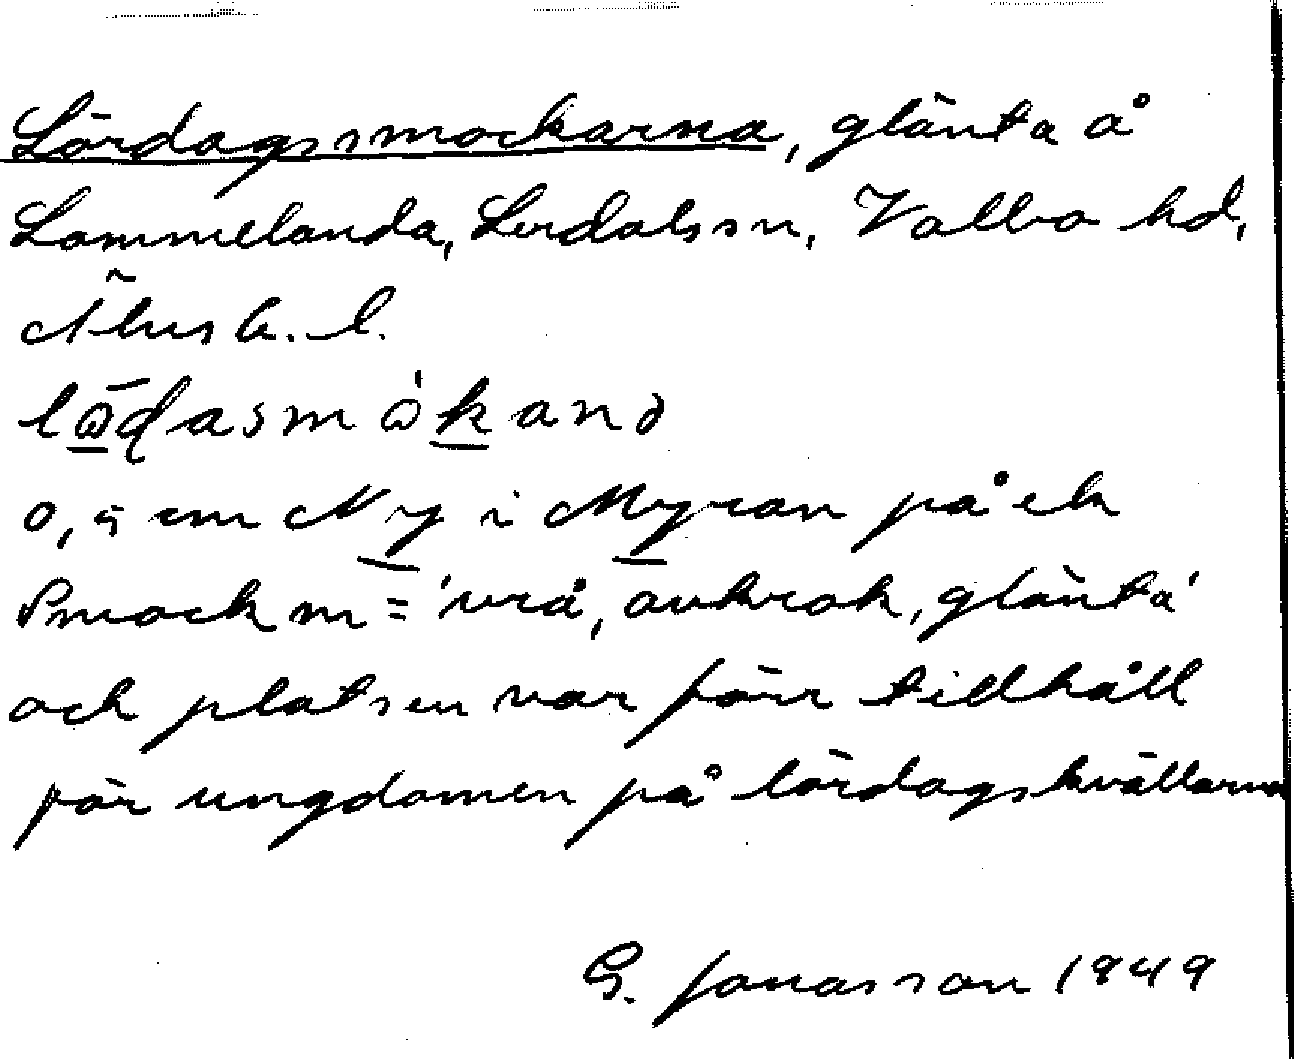 Lördagssmockarna, glänta å
Lammelanda, Lerdals sn, Valbo hd,
Älvsb. l.
0,5 cm N y i Myran på ek
Smock m = 'vrå, avkrok, glänta'
och platsen var förr tillhåll
för ungdomen på lördagskvällarna
G. Jonasson 1949